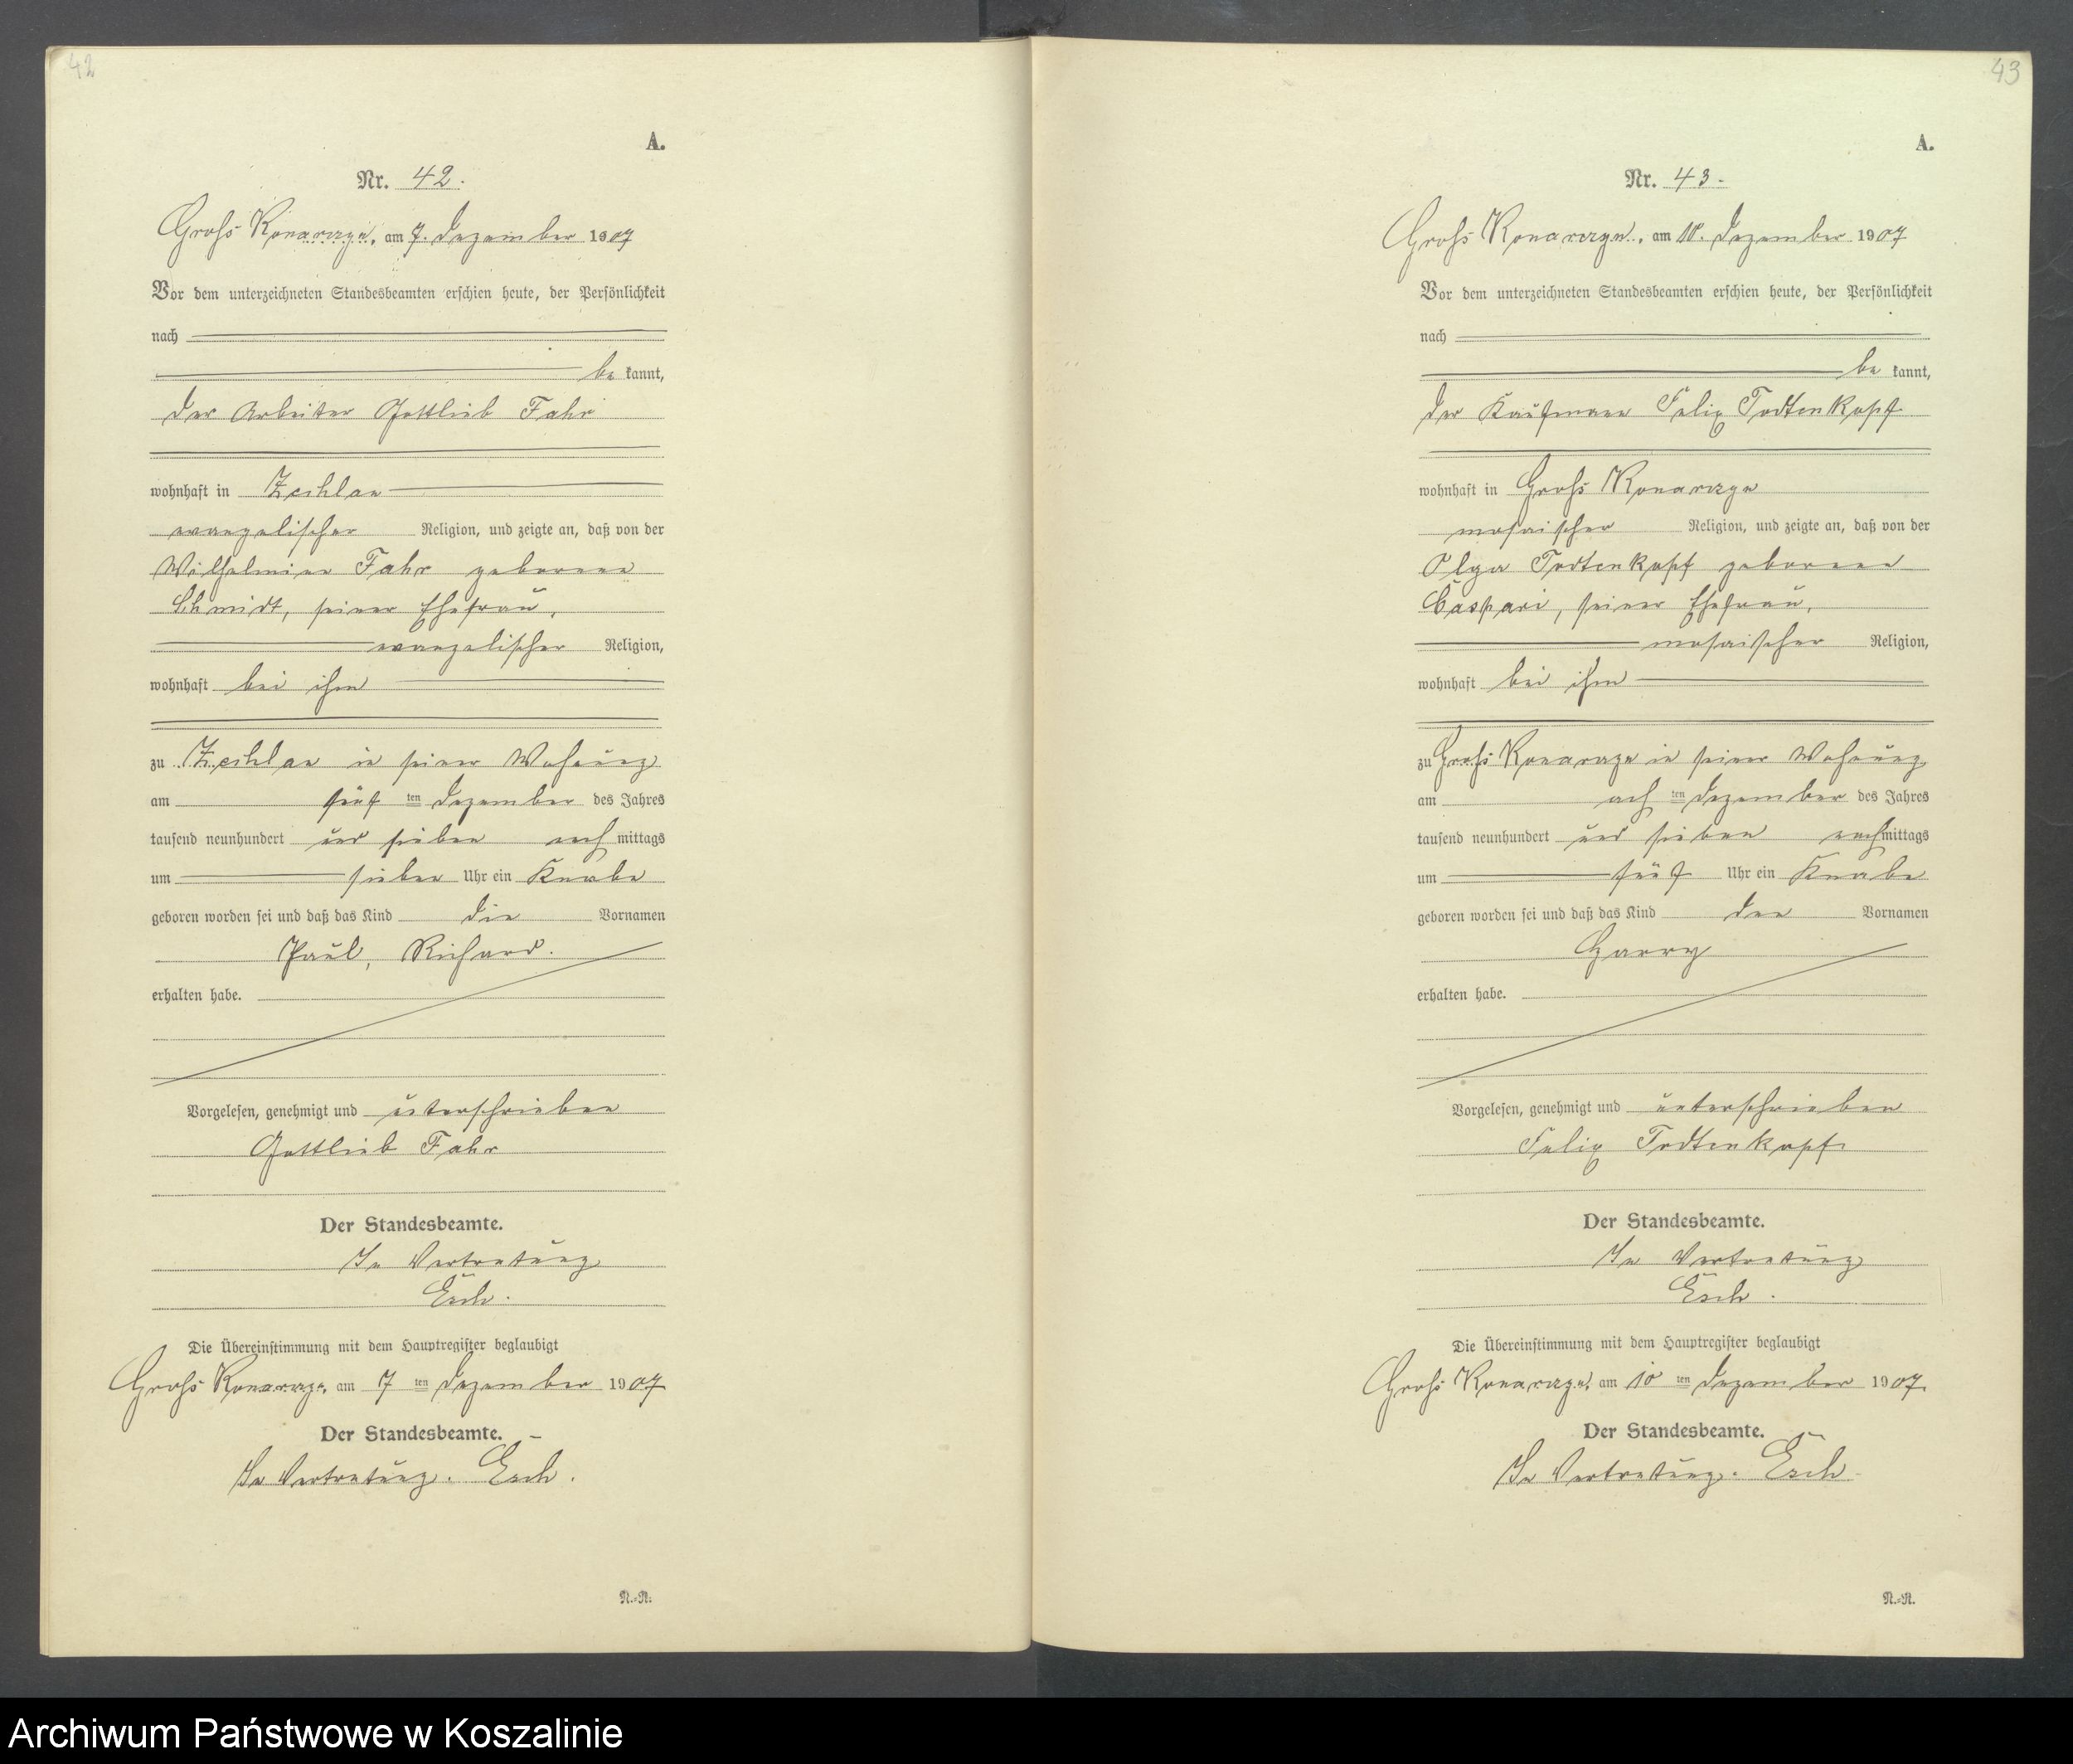 42
A.
Nr. 42.
Groß Konarczyn, am 7. Dezember 1907
Vor dem unterzeichneten Standesbeamten erschien heute, der Persönlichkeit
nach
be kannt,
der Arbeiter Gottlieb Fahr
wohnhaft in Zechlau
evangelischer Religion, und zeigte an, daß von der
Wilhelmine Fahr geborene
Schmidt, seiner Ehefrau,
evangelischer Religion,
wohnhaft bei ihm
zu Zechlau in seiner Wohnung
am fünf ten Dezember des Jahres
tausend neunhundert und sieben nach mittags
um sieben Uhr ein Knabe
geboren worden sei und daß das Kind die Vornamen
Paul, Richard.
erhalten habe.
Vorgelesen, genehmigt und unterschrieben
Gottlieb Fahr
Der Standesbeamte.
In Vertretung
Esch.
Die Übereinstimmung mit dem Hauptregister beglaubigt
Groß Konarczyn, am 7 ten Dezember 1907
Der Standesbeamte.
In Vertretung. Esch.
N.-R.
43
A.
Nr. 43.
Groß Konarczyn, am 10. Dezember 1907
Vor dem unterzeichneten Standesbeamten erschien heute, der Persönlichkeit
nach
be kannt,
der Kaufmann Felix Todtenkopf
wohnhaft in Groß Konarczyn
mosaischer Religion, und zeigte an, daß von der
Olga Todtenkopf geborene
Caspari, seiner Ehefrau,
mosaischer Religion,
wohnhaft bei ihm
zu Groß Konarczyn in seiner Wohnung
am ach ten Dezember des Jahres
tausend neunhundert und sieben nachmittags
um fünf Uhr ein Knabe
geboren worden sei und daß das Kind den Vornamen
Harry
erhalten habe.
Vorgelesen, genehmigt und unterschrieben
Felix Todtenkopf
Der Standesbeamte.
In Vertretung
Esch.
Die Übereinstimmung mit dem Hauptregister beglaubigt
Groß Konarczyn, am 10 ten Dezember 1907.
Der Standesbeamte.
In Vertretung. Esch
N.-R.
Archiwum Państwowe w Koszalinie